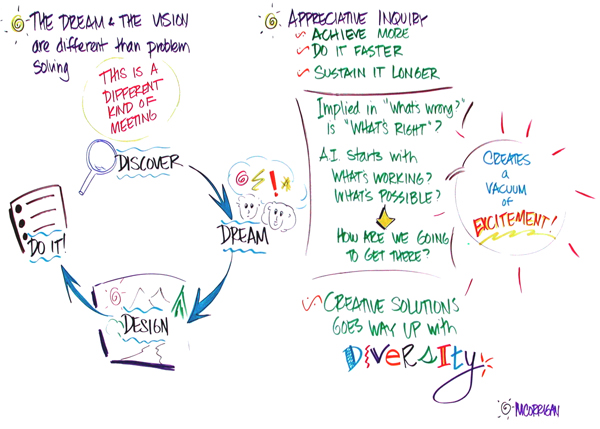 THE DREAM & THE VISION
are different than problem
solving
THIS IS A
DIFFERENT
KIND OF
MEETING
DISCOVER
DREAM
DESIGN
DO IT!
APPRECIATIVE INQUIRY
ACHIEVE MORE
DO IT FASTER
SUSTAIN IT LONGER
Implied in "What's wrong?"
is "WHAT'S RIGHT"?
A.I. Starts with
WHAT'S WORKING?
WHAT'S POSSIBLE?
HOW ARE WE GOING
TO GET THERE?
CREATES
a
VACUUM
of
EXCITEMENT!
CREATIVE SOLUTIONS
GOES WAY UP with
DiVERSIty
MCORRIGAN